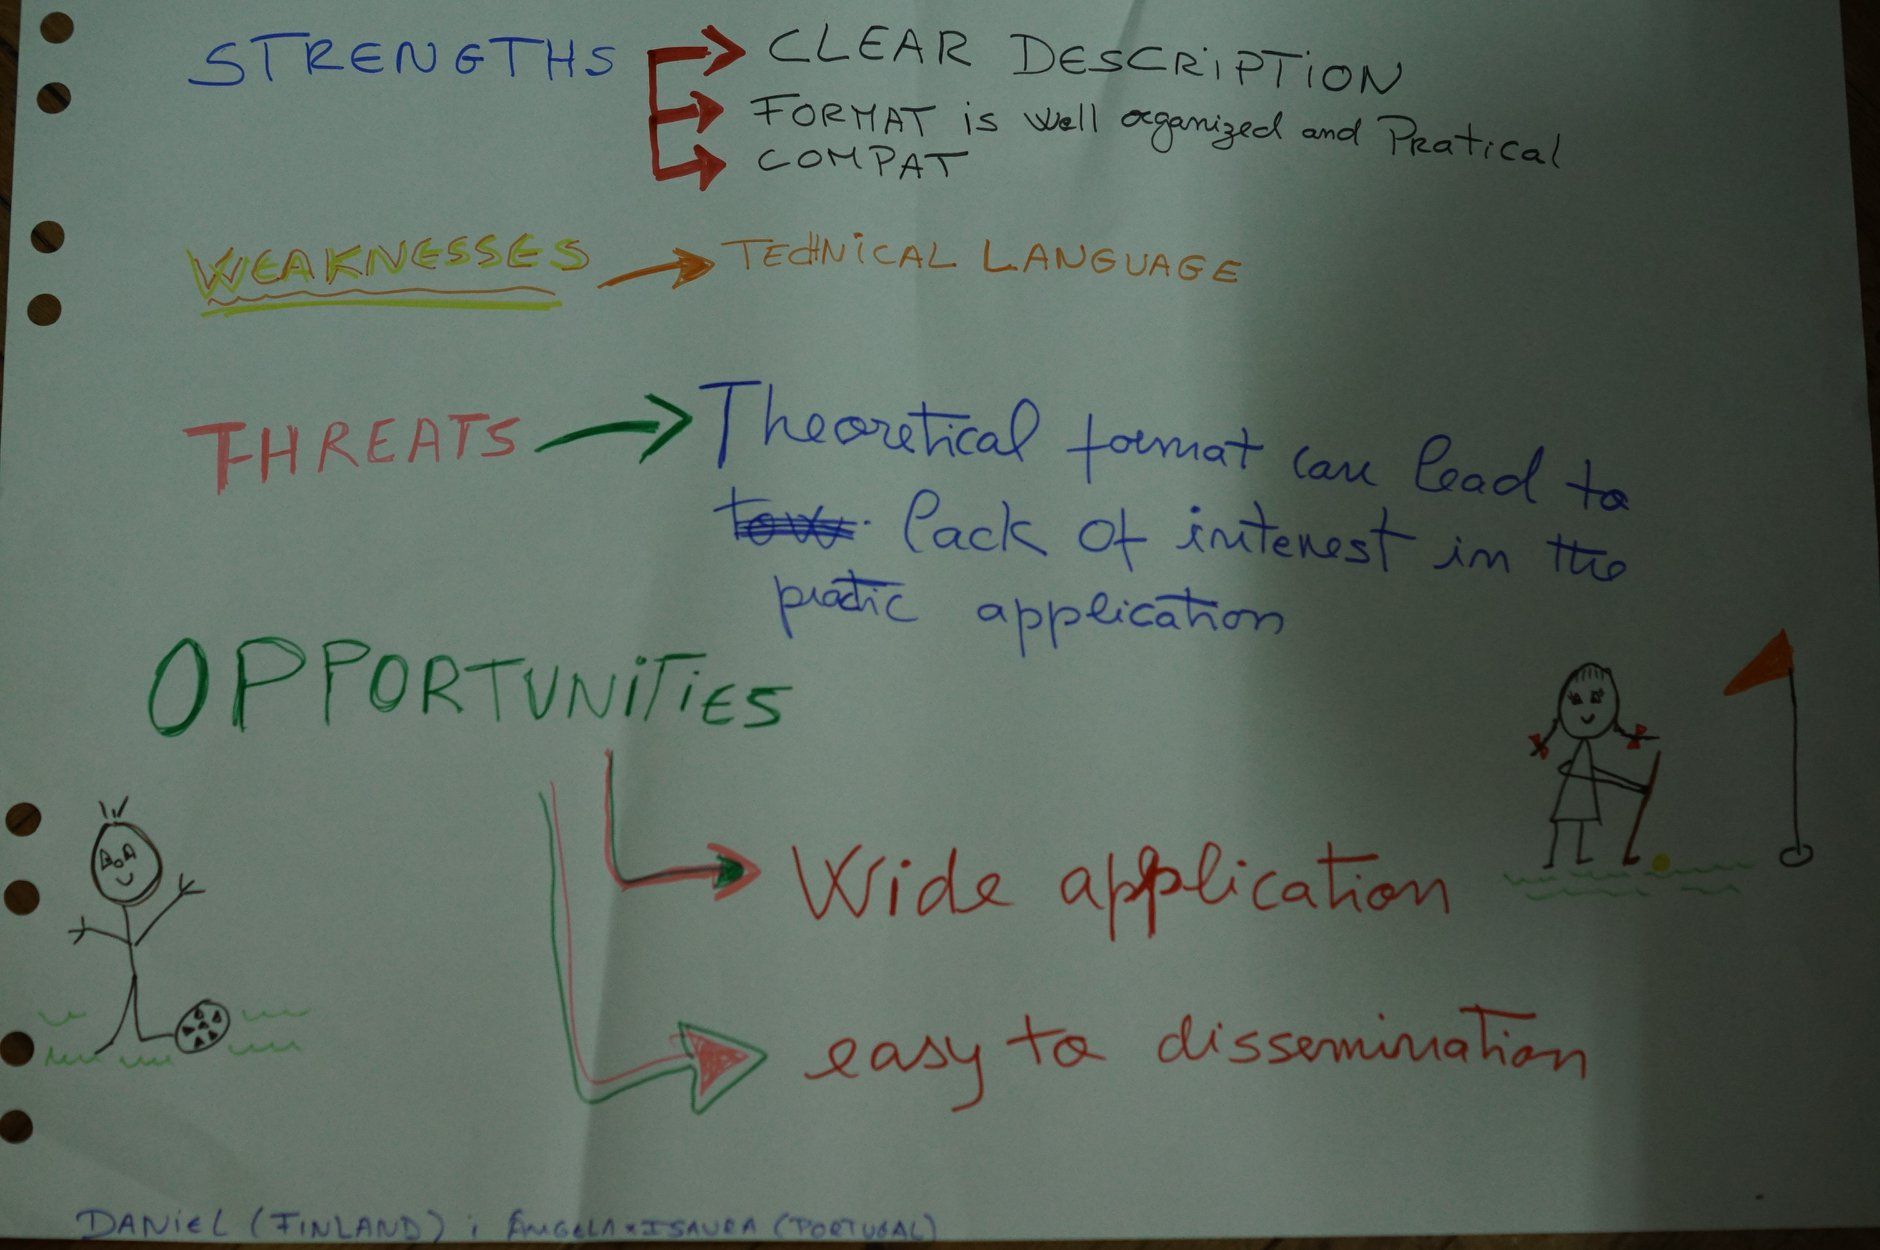 STRENGTHS CLEAR DESCRIPTION
FORMAT is well organized and Pratical
COMPAT
WEAKNESSES TECHNICAL LANGUAGE
THREATS Theoretical format can lead to
tow lack of interest in the
pratic application
OPPORTUNITIES
Wide application
easy to dissemination
DANIEL (FINLAND) ; ÂNGELA + ISAURA (PORTUGAL)